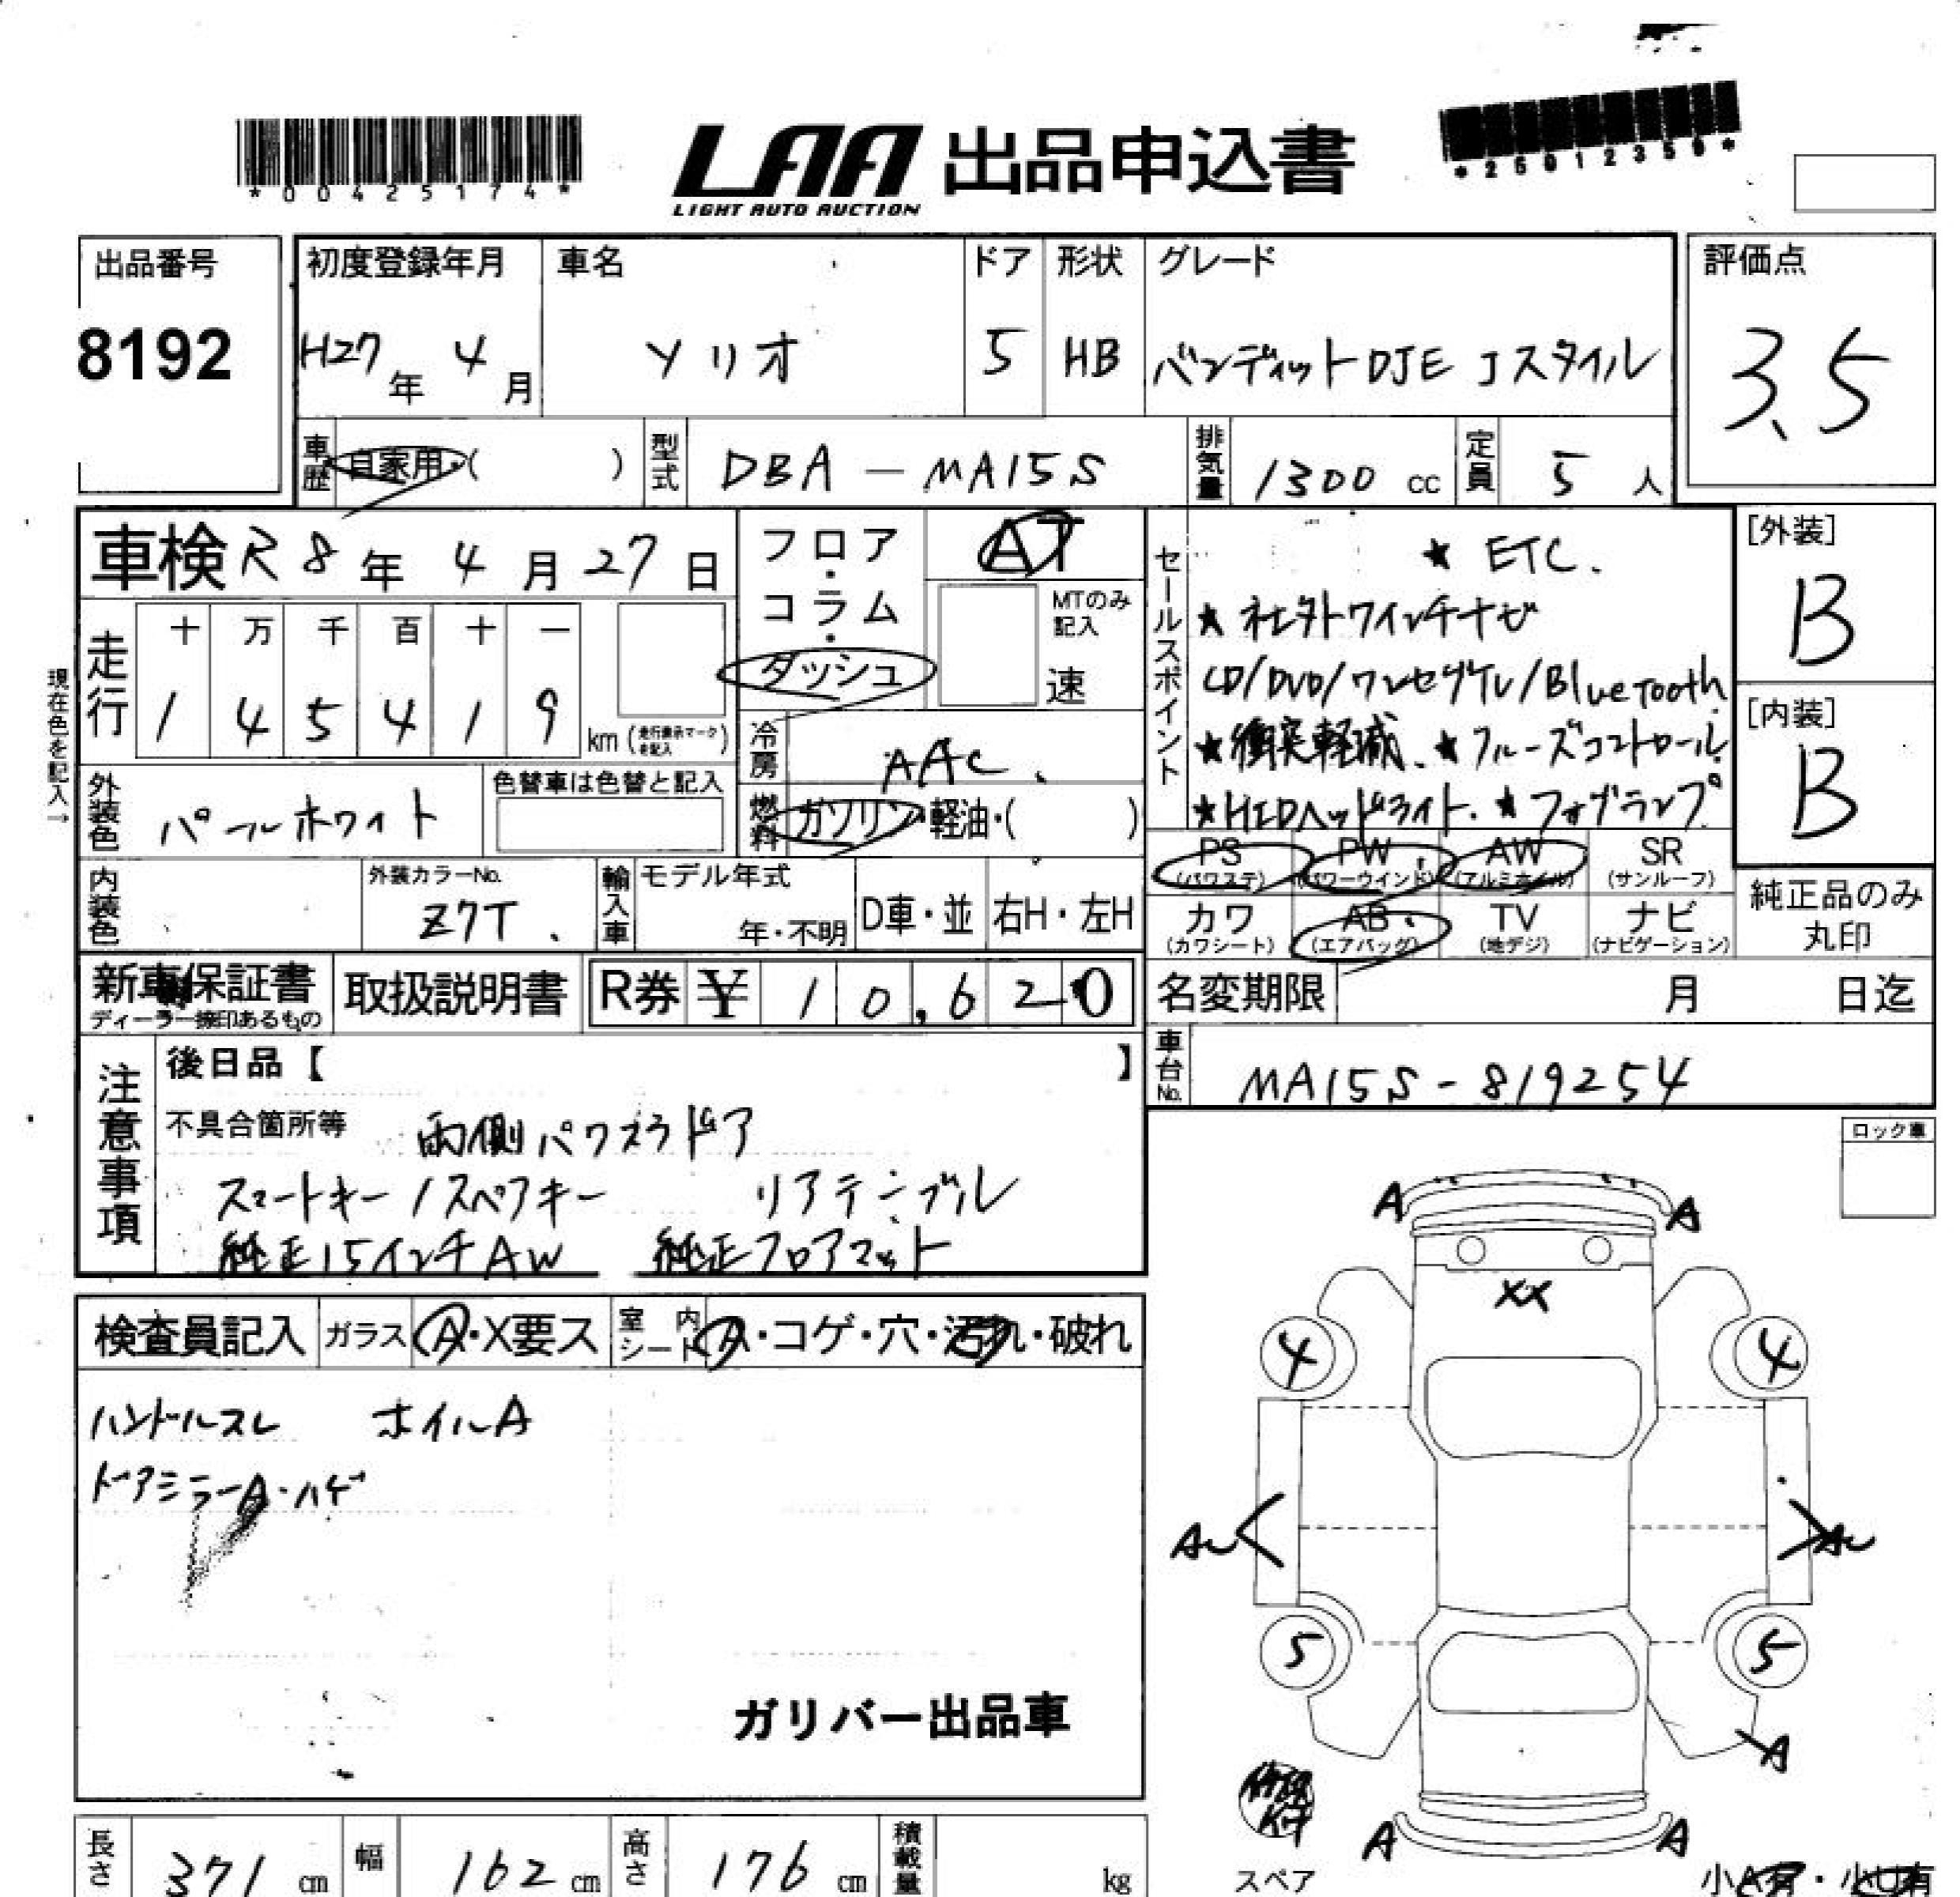 *00425174*
LAA 出品申込書
LIGHT AUTO AUCTION
*26012350*
出品番号
8192
初度登録年月
H27年 4月
車名
ソリオ
ドア
5
形状
HB
グレード
バンディットDJE Jスタイル
評価点
3.5
車歴 自家用・( )
型式 DBA - MA15S
排気量 1300 cc
定員 5 人
車検 R8年 4月 27日
フロア・コラム・ダッシュ
AT
MTのみ記入
速
現在色を記入→
走行
十 万 千 百 十 一
1 4 5 4 1 9 km (走行表示マークを記入)
冷房 AAC.
外装色 パールホワイト
色替車は色替と記入
燃料 ガソリン・軽油・( )
内装色
外装カラーNo.
Z7T.
輸入車 モデル年式
年・不明
D車・並
右H・左H
セールスポイント
★ ETC.
★ 社外7インチナビ
CD/DVD/ワンセグTV/Bluetooth
★衝突軽減. ★クルーズコントロール
★HIDヘッドライト. ★フォグランプ
[外装]
B
[内装]
B
PS (パワステ)
PW (パワーウインド)
AW (アルミホイル)
SR (サンルーフ)
カワ (カワシート)
AB (エアバッグ)
TV (地デジ)
ナビ (ナビゲーション)
純正品のみ丸印
新車保証書
ディーラー捺印あるもの
取扱説明書
R券 ¥ 10,620
名変期限 月 日迄
車台No. MA15S - 819254
注意事項
後日品【 】
不具合箇所等 両側パワスラドア
スマートキー/スペアキー リアテーブル
純正15インチAW 純正フロアマット
ロック車
検査員記入
ガラス A・X要ス
室内シート A・コゲ・穴・汚れ・破れ
ハンドルスレ ホイルA
ドアミラーA・ハゲ
ガリバー出品車
A A
XX
4 4
AU AU
5 5
A
A A
スペア
小A有・小U有
長さ 371 cm
幅 162 cm
高さ 176 cm
積載量 kg